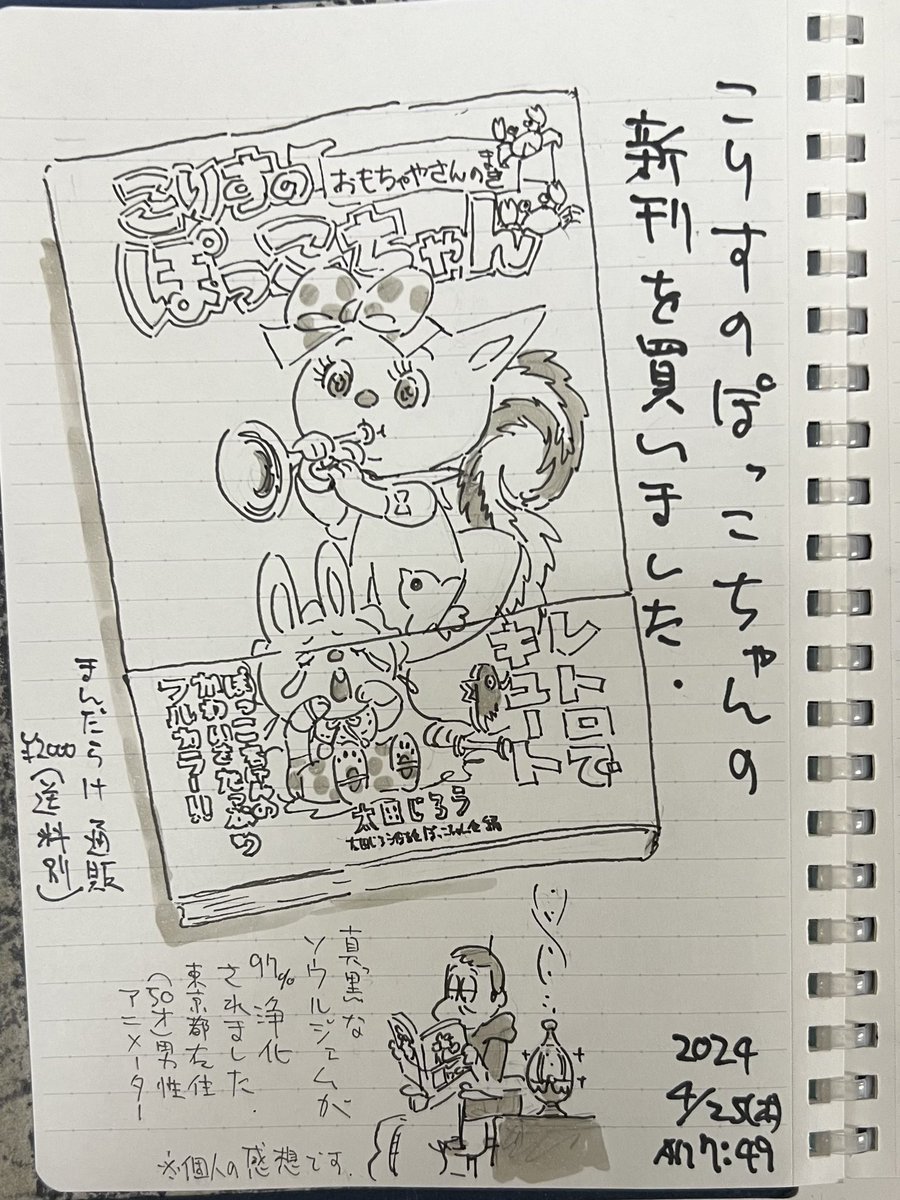 こりすのぽっこちゃんの
新刊を買いました.
こりすの
おもちゃやさんのまき
ぽっこちゃん
レトロで
キュート
ぽっこちゃんの
かわいさたっぷり
フルカラー!!
太田じろう
まんだらけ通販
¥2000(送料別)
真っ黒な
ソウルジェムが
97%浄化
されました.
東京都在住
(50才)男性
アニメーター
※個人の感想です.
2024
4/25(木)
AM7:49